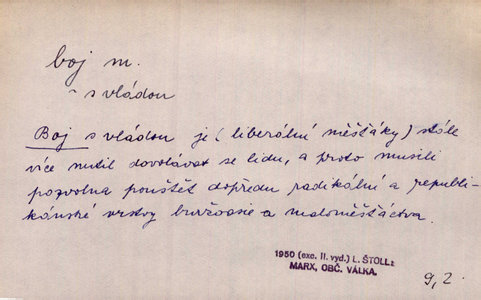 boj m.
~ s vládou
Boj s vládou je (liberální měšťáky) stále
více nutil dovolávat se lidu, a proto musili
pozvolna pouštět dopředu radikální a republi-
kánské vrstvy buržoasie a maloměšťáctva.
1950 (exc. II. vyd.) L. ŠTOLL:
MARX, OBČ. VÁLKA.
9,2.